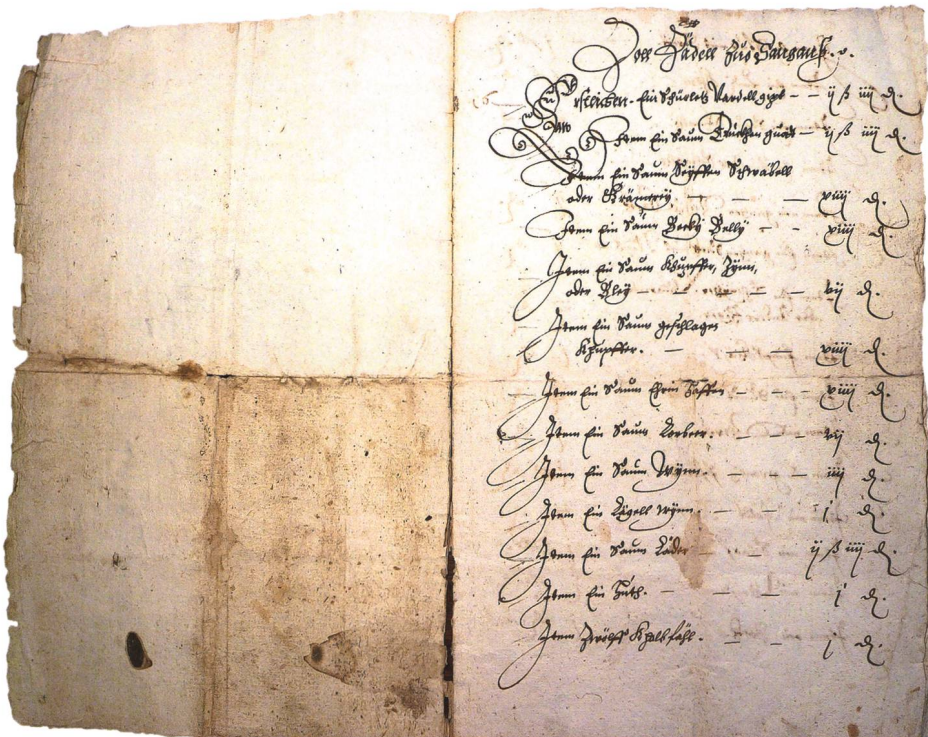 Zoll Rädell Zuo Sargans.
Erstlichen. Ein Schürletz Vardell gipt — — ij ß iiij d.
Item Ein Saum Truckhen guot — ij ß iiij d.
Item Ein Saum Seÿffen Schwäbell
oder Krämereÿ. — — — — viiij d.
Item Ein Saum — — viiij d.
Item Ein Saum Khupffer, Zÿnn,
oder Bleÿ — — — — — vij d.
Item Ein Saum geschlagen
Khupffer. — — — — viiij d.
Item Ein Saum Ehrin Häffen — — — viiij d.
Item Ein Saum Lorbeer. — — — vij d.
Item Ein Saum Wÿnn. — — — — iiij d.
Item Ein Lägell wÿnn. — — — j d.
Item Ein Saum Läder — — — ij ß iiij d.
Item Ein Huth. — — — — j d.
Item Zwölff Khalbfähl. — — — j d.